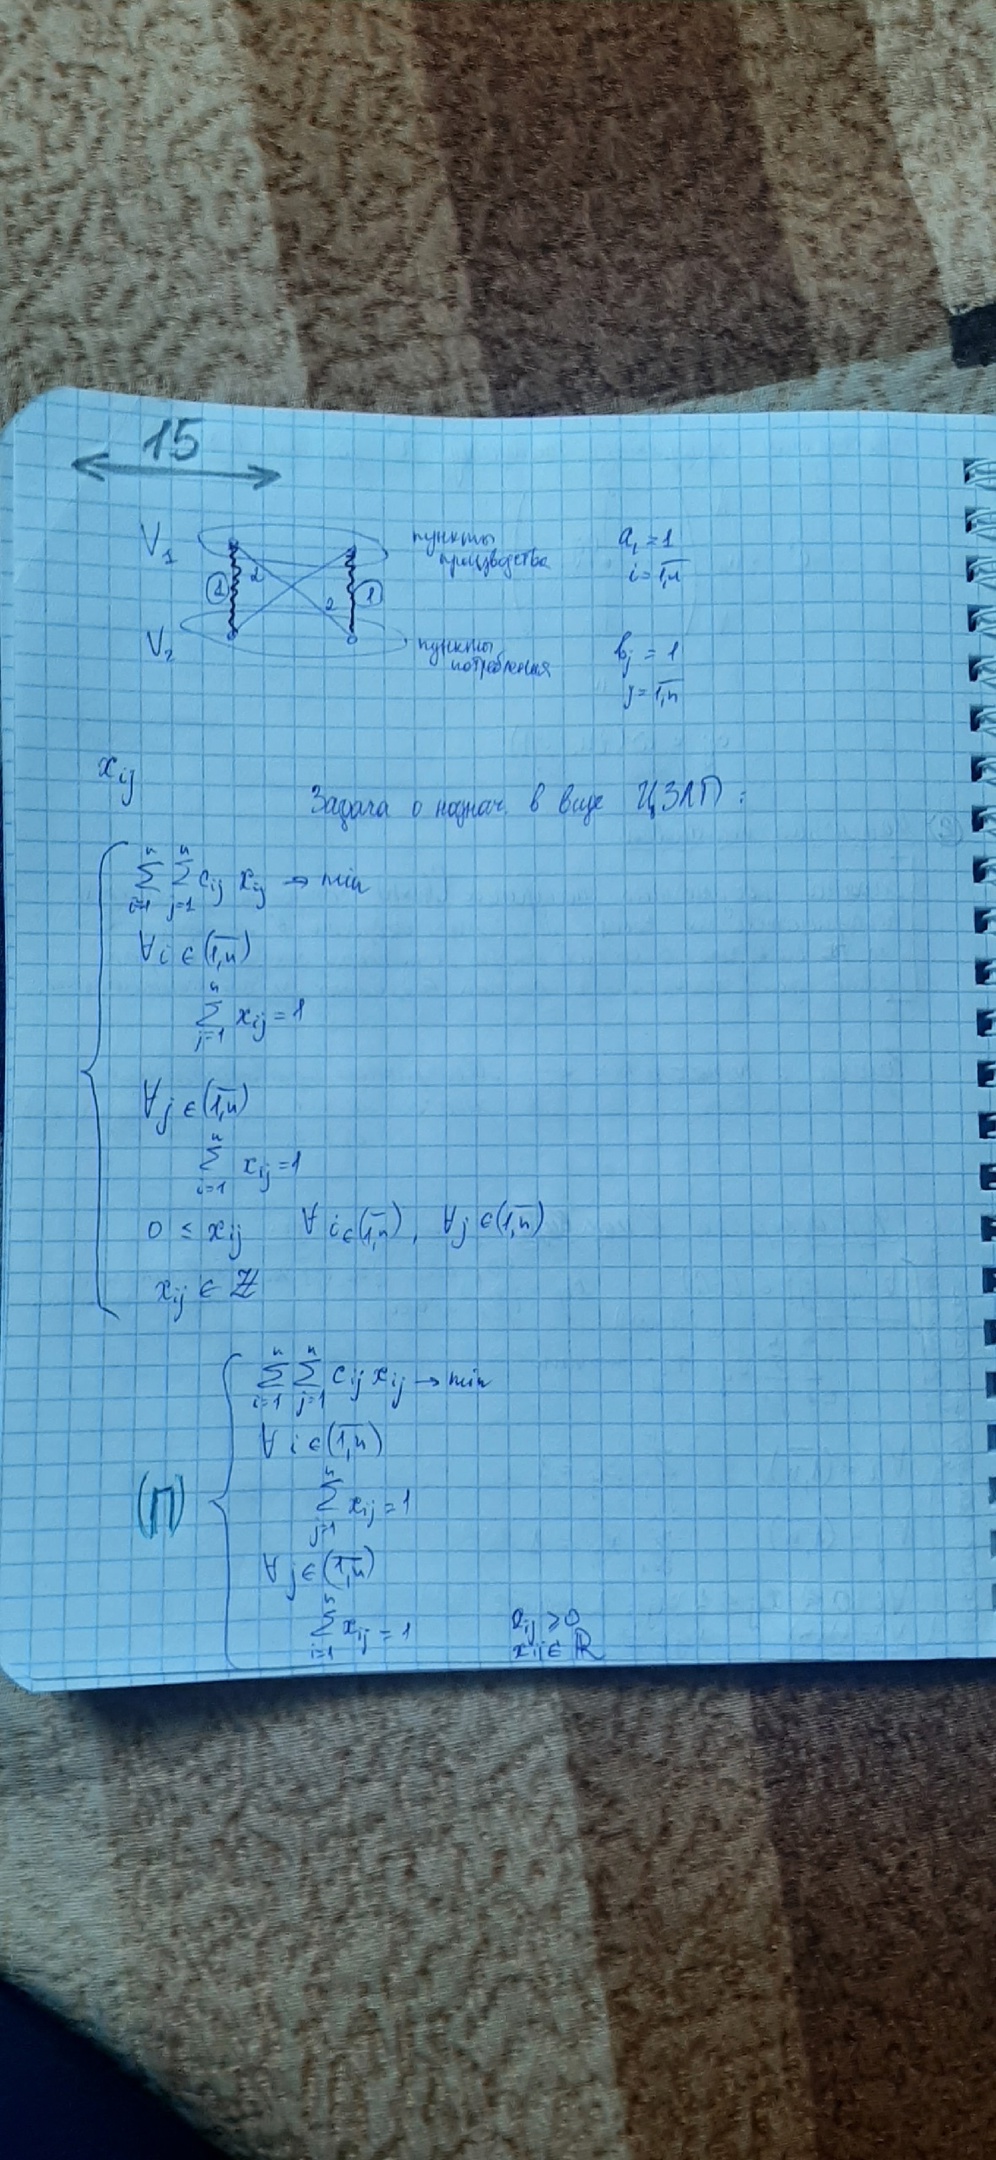 15
V₁ пункты производства a₁ = 1
i = 1,n
① 2 2 ①
V₂ пункты потребления bⱼ = 1
j = 1,n
xᵢⱼ
Задача о назнач. в виде ЦЗЛП:
∑ⁿᵢ₌₁ ∑ⁿⱼ₌₁ cᵢⱼ xᵢⱼ → min
∀i ∈ (1,n)
∑ⁿⱼ₌₁ xᵢⱼ = 1
∀j ∈ (1,n)
∑ⁿᵢ₌₁ xᵢⱼ = 1
0 ≤ xᵢⱼ ∀ i ∈ (1,n), ∀j ∈ (1,n)
xᵢⱼ ∈ ℤ
(П)
∑ⁿᵢ₌₁ ∑ⁿⱼ₌₁ cᵢⱼ xᵢⱼ → min
∀ i ∈ (1,n)
∑ⁿⱼ₌₁ xᵢⱼ = 1
∀ j ∈ (1,n)
∑ⁿᵢ₌₁ xᵢⱼ = 1 xᵢⱼ ≥ 0
xᵢⱼ ∈ ℝ